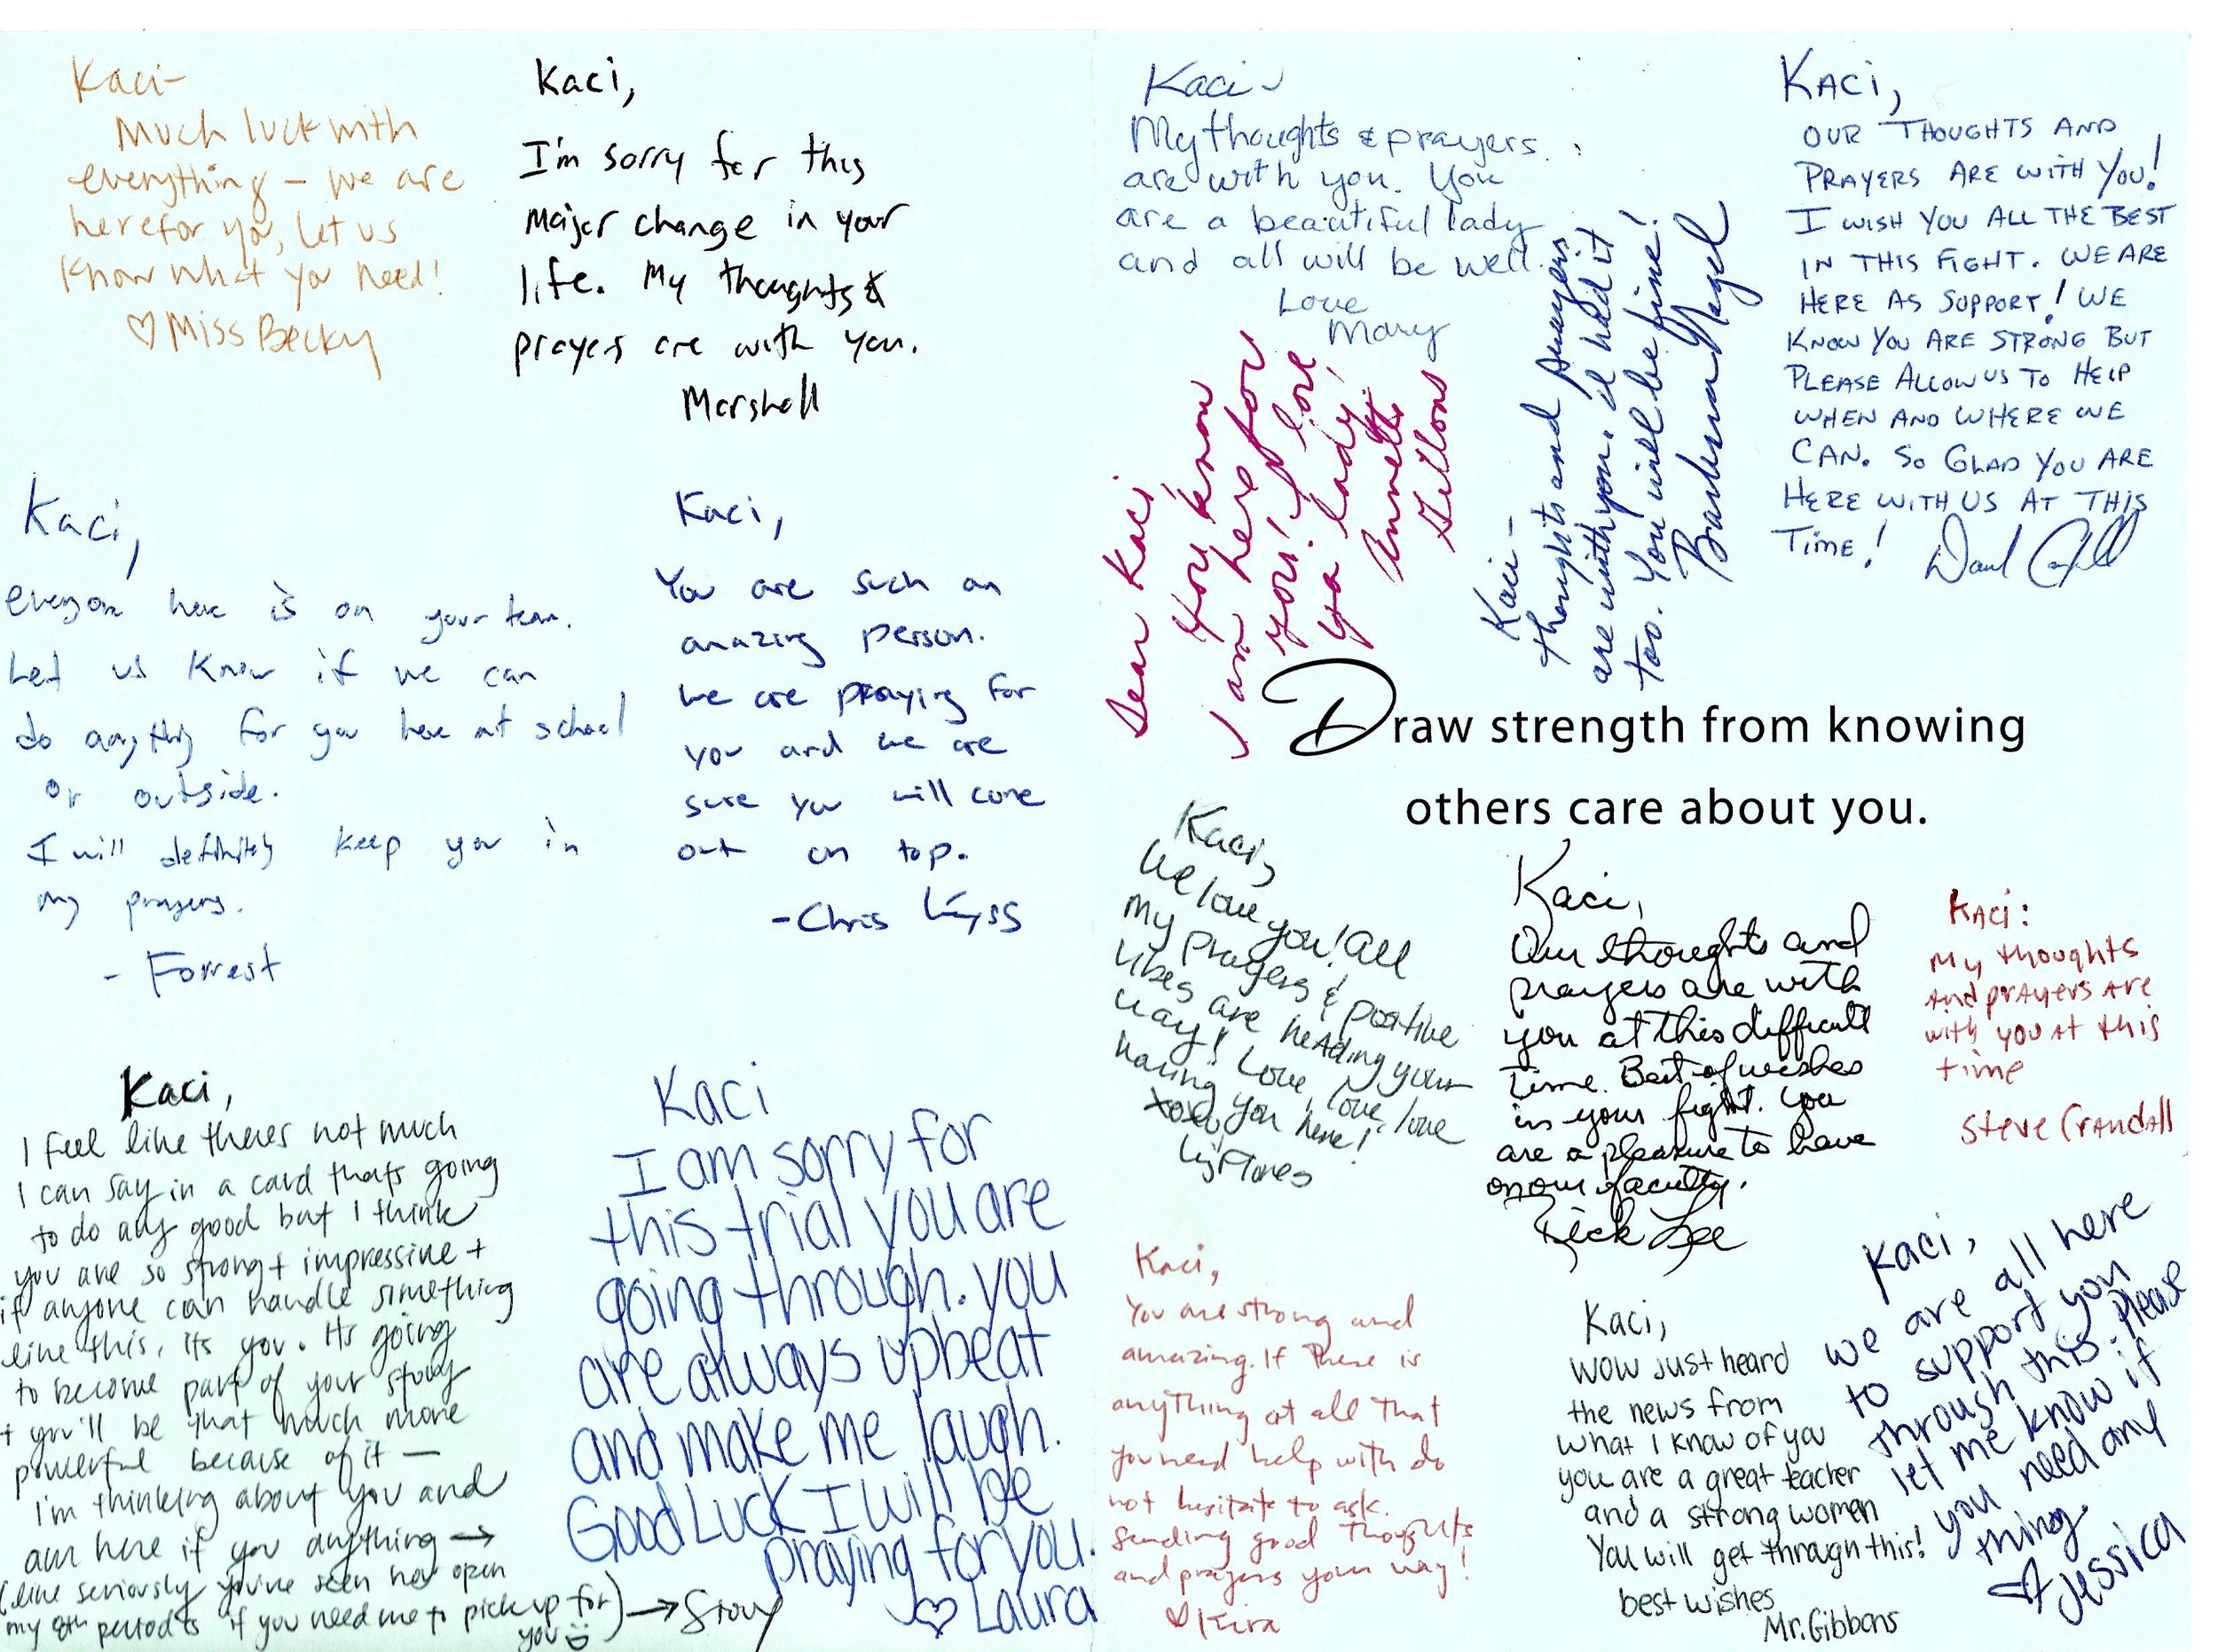 Kaci-
Much luck with
everything - we are
here for you, let us
know what you need!
♡ Miss Becky
Kaci,
I'm sorry for this
major change in your
life. My thoughts &
prayers are with you.
Marshall
Kaci,
everyone here is on your team.
Let us know if we can
do anything for you here at school
or outside.
I will definitely keep you in
my prayers.
- Forrest
Kaci,
You are such an
amazing person.
We are praying for
you and we are
sure you will come
out on top.
-Chris
Kaci,
I feel like theres not much
I can say in a card thats going
to do any good but I think
you are so strong + impressive +
if anyone can handle something
like this, its you. Its going
to become part of your story
+ you'll be that much more
powerful because of it —
I'm thinking about you and
am here if you anything →
(like seriously you've seen how open
my 8th period is if you need me to pick up for
you ☺) → Story
Kaci
I am sorry for
this trial you are
going through. you
are always upbeat
and make me laugh.
Good Luck I will be
praying for you.
♡ Laura
Kaci-
My thoughts & prayers
are with you. You
are a beautiful lady
and all will be well.
Love
Mary
Dear Kaci,
You know
I am here for
you! I love
ya lady,
Annette
Gillons
Kaci-
thoughts and prayers
are with you. I'd hold it
too. You will be fine!
Barbara Nagel
KACI,
OUR THOUGHTS AND
PRAYERS ARE WITH YOU!
I WISH YOU ALL THE BEST
IN THIS FIGHT. WE ARE
HERE AS SUPPORT! WE
KNOW YOU ARE STRONG BUT
PLEASE ALLOW US TO HELP
WHEN AND WHERE WE
CAN. SO GLAD YOU ARE
HERE WITH US AT THIS
TIME!
Draw strength from knowing
others care about you.
Kaci,
We love you! All
my prayers & positive
vibes are heading your
way! Love, love, love
having you here!
xoxo,
Kaci,
Our thoughts and
prayers are with
you at this difficult
time. Best of wishes
in your fight. You
are a pleasure to have
on our faculty.
Rick Lee
KACI:
My thoughts
and prayers are
with you at this
time
Steve Crandall
Kaci,
You are strong and
amazing. If there is
anything at all that
you need help with do
not hesitate to ask.
Sending good thoughts
and prayers your way!
♡ Kira
Kaci,
Wow just heard
the news from
what I know of you
you are a great teacher
and a strong women
You will get through this!
best wishes
Mr. Gibbons
Kaci,
we are all here
to support you
through this. Please
let me know if
you need any
thing.
♡ Jessica